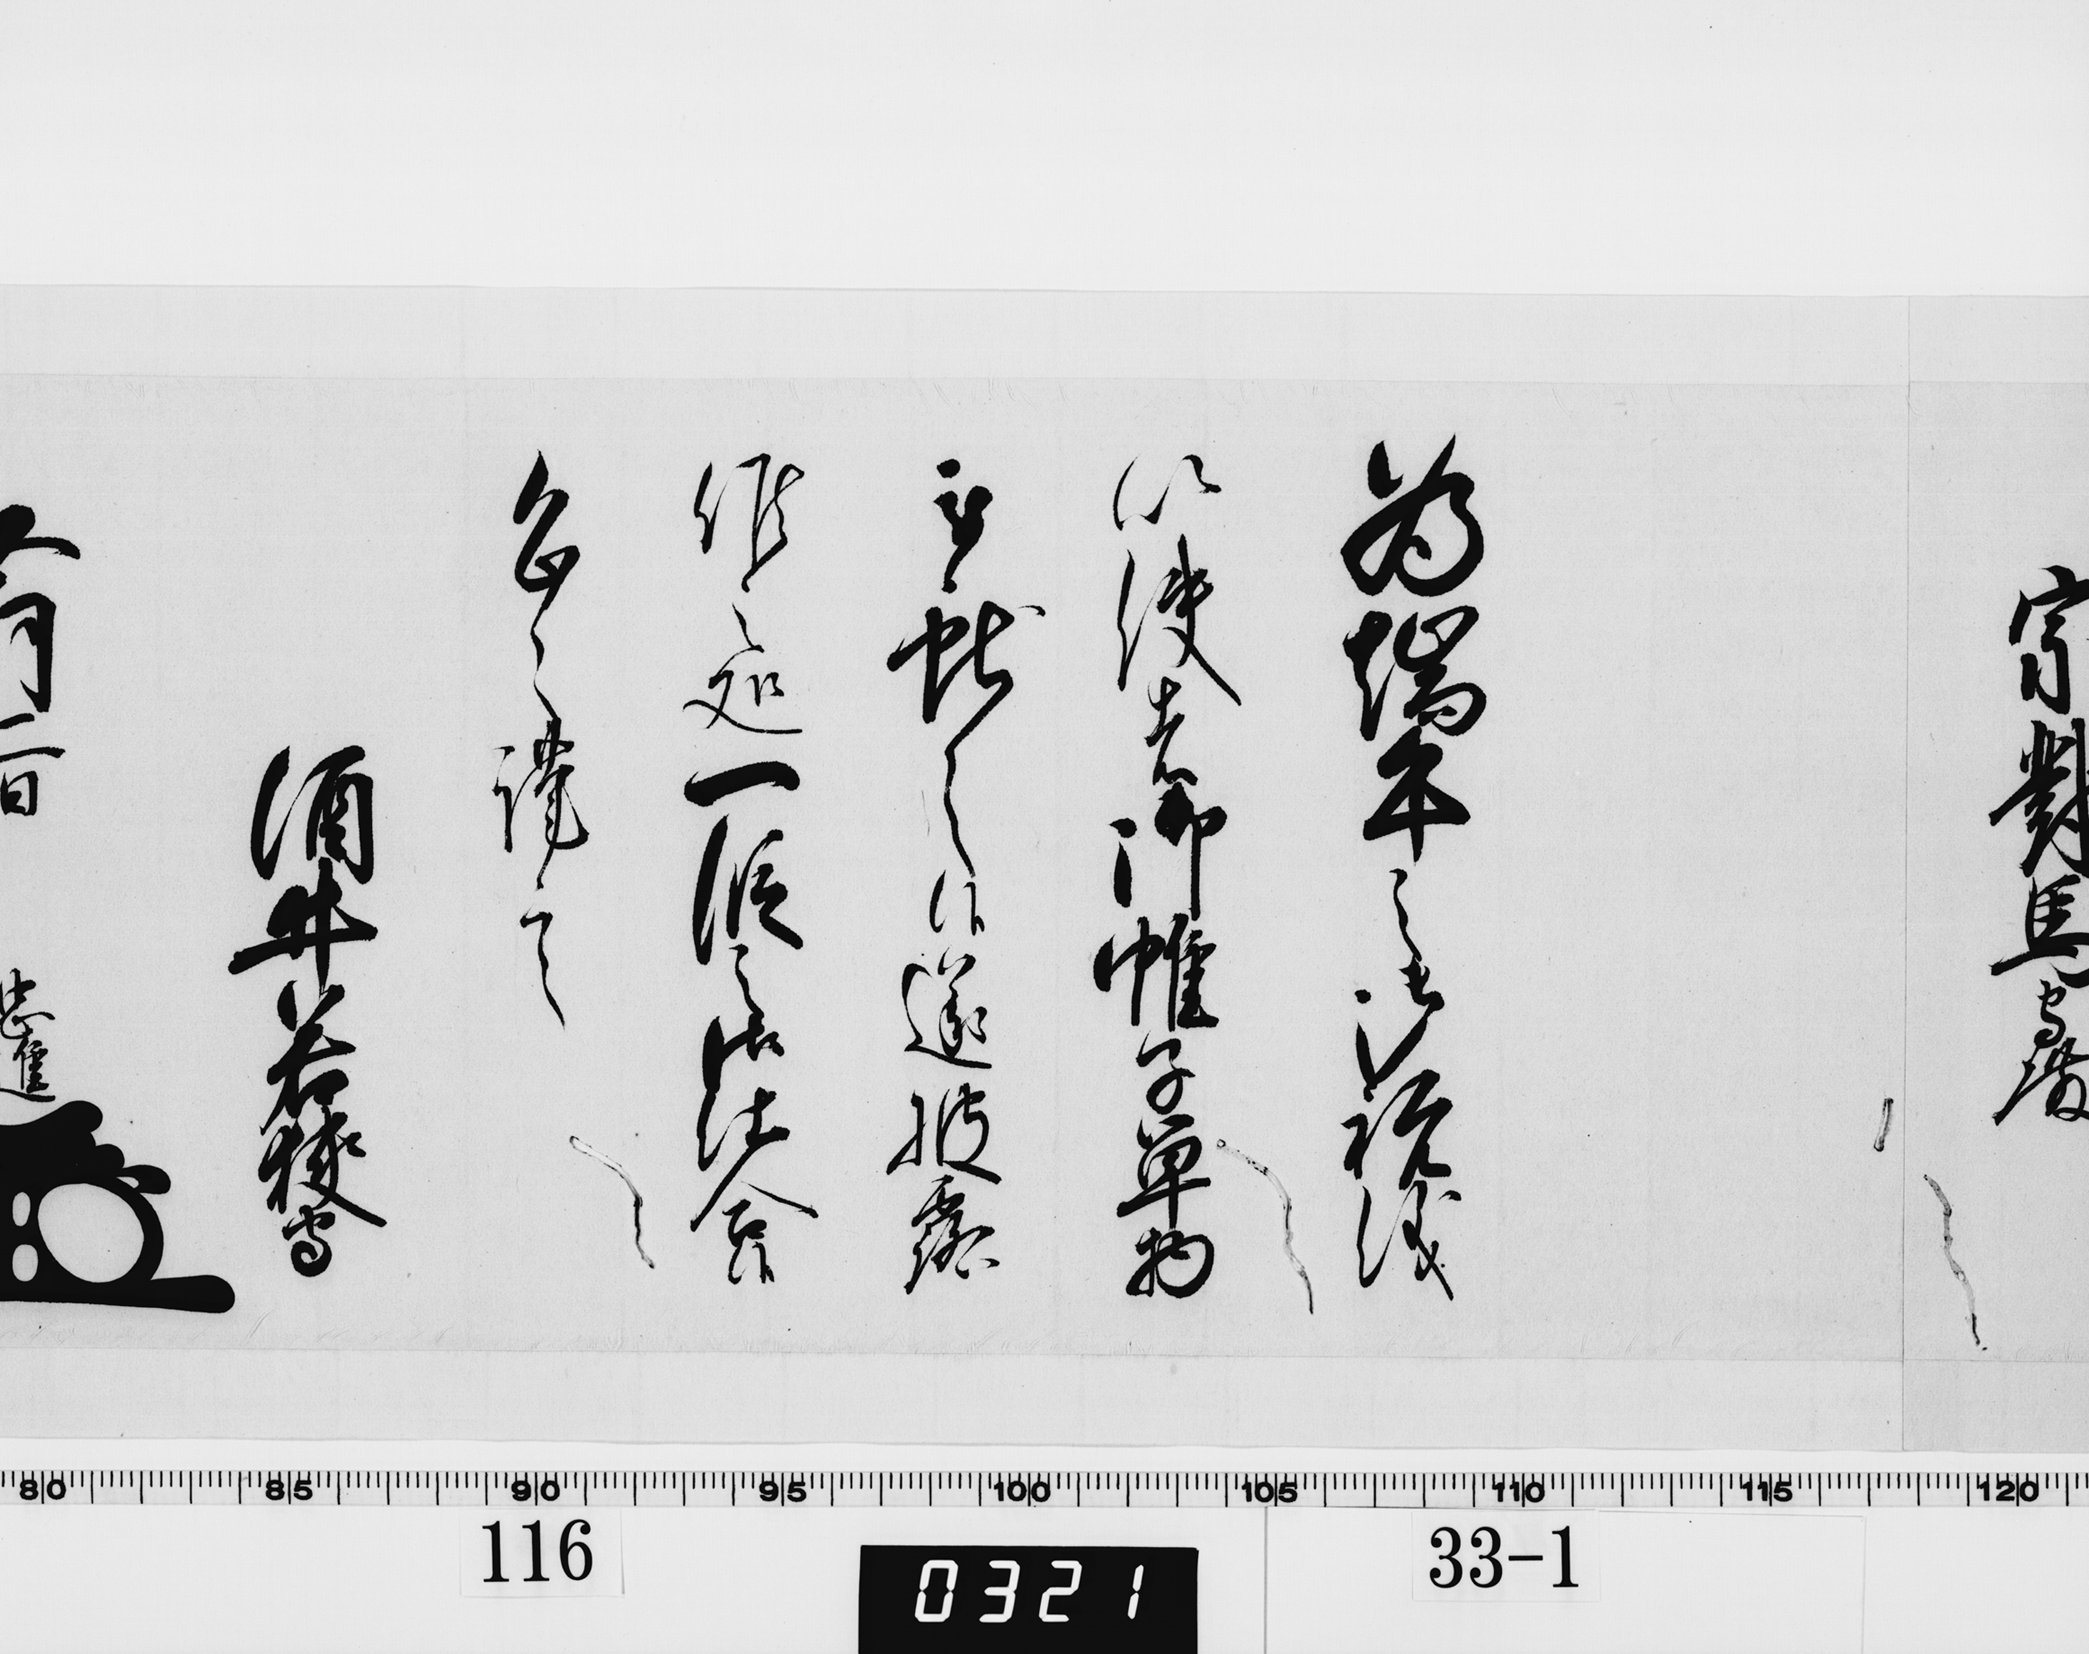 宗對馬守殿
為端午之御祝儀
以使者御帷子單物
被献之候遂披露
候之処一段之御仕合候
恐々謹言
酒井若狹守
五月二日
忠進
80 85 90 95 100 105 110 115 120
116
0321
33-1